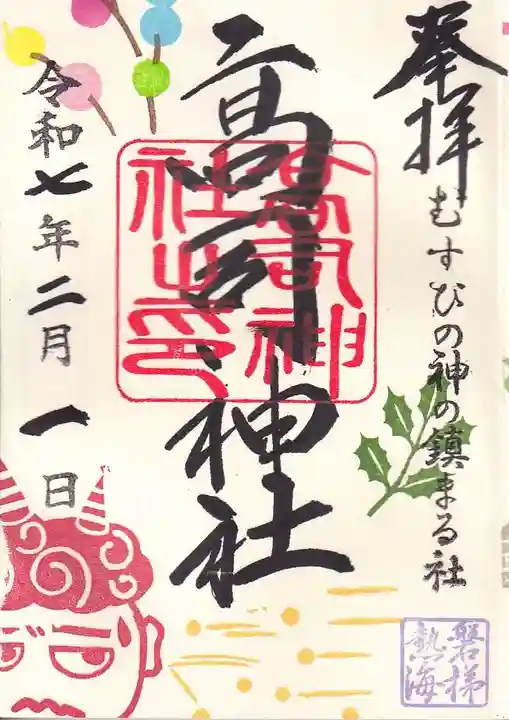 奉拝
むすひの神の鎮まる社
高司神社
高司神社之印
令和七年二月一日
磐梯熱海